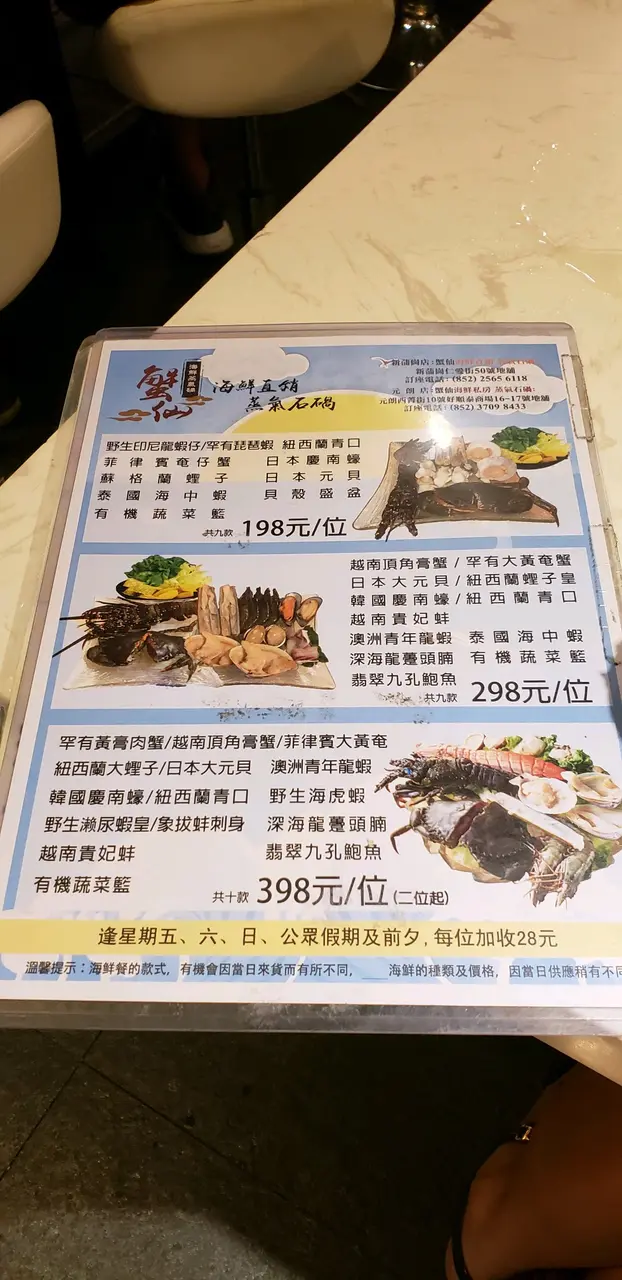 蟹仙
海鮮蒸氣鍋
海鮮直銷
蒸氣石鍋
新蒲崗店:蟹仙
新蒲崗仁愛街50號地舖
訂座電話:(852) 2565 6118
元朗店:蟹仙海鮮私房 蒸氣石鍋:
元朗西菁街10號好順泰商場16-17號地舖
訂座電話:(852) 3709 8433
野生印尼龍蝦仔/罕有琵琶蝦 紐西蘭青口
菲律賓奄仔蟹 日本慶南蠔
蘇格蘭蟶子 日本元貝
泰國海中蝦 貝殼盛盆
有機蔬菜籃
共九款 198元/位
越南頂角膏蟹/罕有大黃奄蟹
日本大元貝/紐西蘭蟶子皇
韓國慶南蠔/紐西蘭青口
越南貴妃蚌
澳洲青年龍蝦 泰國海中蝦
深海龍躉頭腩 有機蔬菜籃
翡翠九孔鮑魚
共九款 298元/位
罕有黃膏肉蟹/越南頂角膏蟹/菲律賓大黃奄
紐西蘭大蟶子/日本大元貝 澳洲青年龍蝦
韓國慶南蠔/紐西蘭青口 野生海虎蝦
野生瀨尿蝦皇/象拔蚌刺身 深海龍躉頭腩
越南貴妃蚌 翡翠九孔鮑魚
有機蔬菜籃
共十款 398元/位(二位起)
逢星期五、六、日、公眾假期及前夕,每位加收28元
溫馨提示:海鮮餐的款式,有機會因當日來貨而有所不同, 海鮮的種類及價格,因當日供應稍有不同